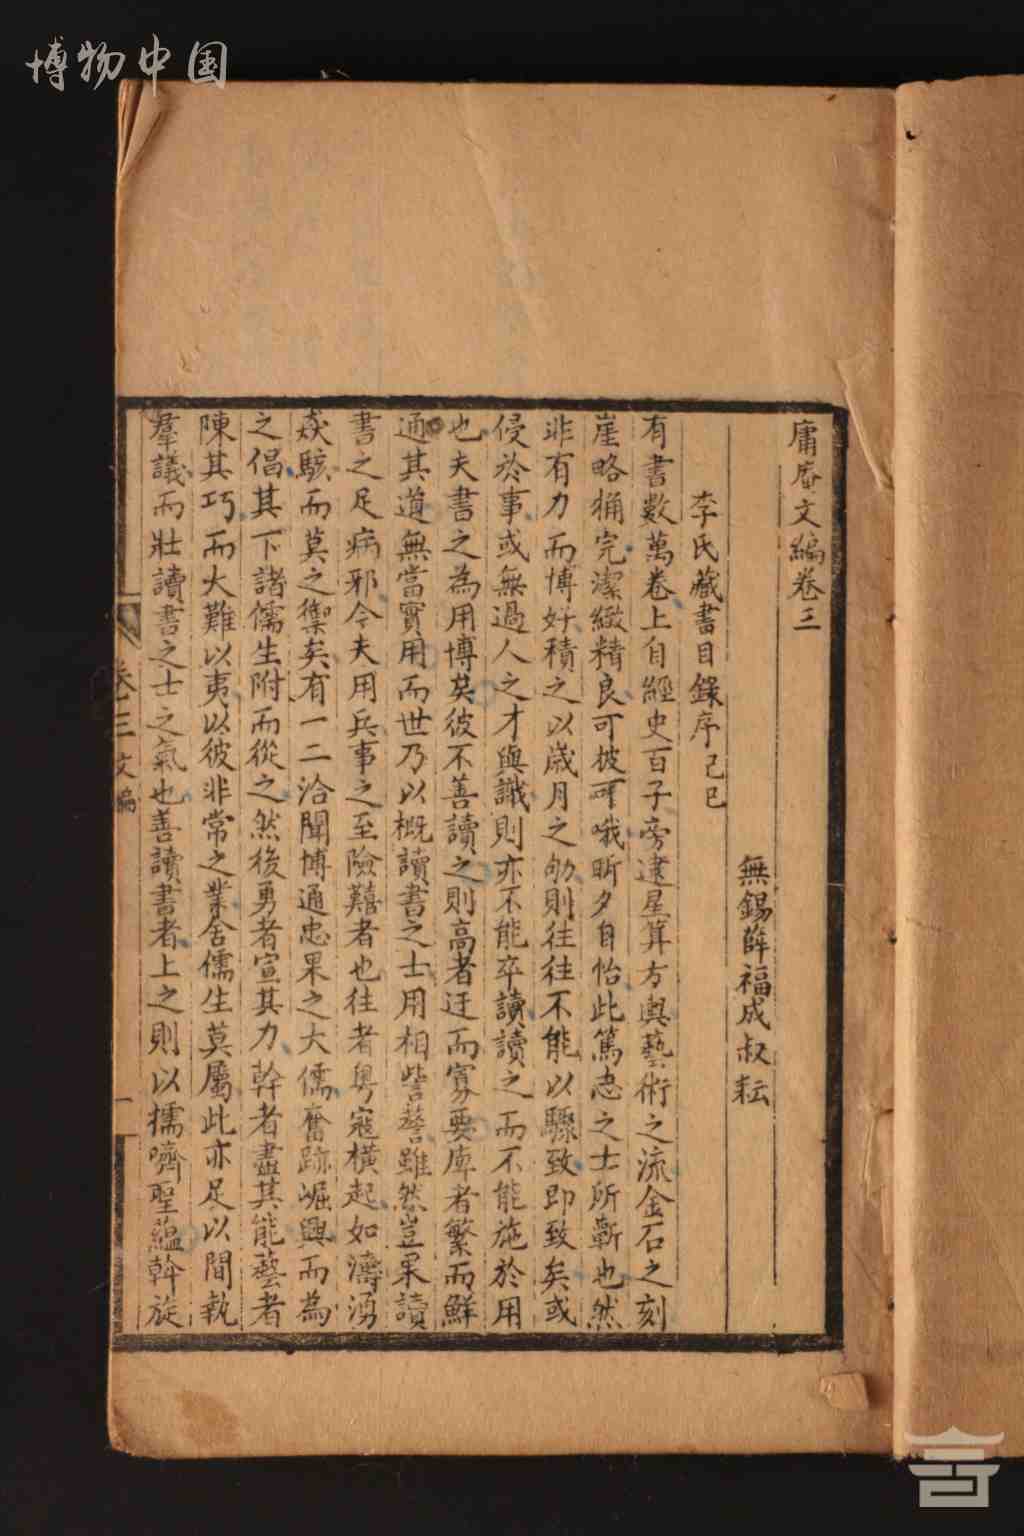 博物中国
庸庵文編卷三
無錫薛福成叔耘
李氏藏書目錄序己巳
有書數萬卷上自經史百子旁逮星算方輿藝術之流金石之刻
崖略獨完潔緻精良可披可哦昕夕自怡此篤志之士所蘄也然
非有力而博好積之以歲月之劬則往往不能以驟致即致矣或
侵於事或無過人之才與識則亦不能卒讀讀之而不能施於用
也夫書之為用博矣彼不善讀之則高者迂而寡要庳者繁而鮮
通其道無當實用而世乃以概讀書之士用相訾謷雖然豈果讀
書之足病邪今夫用兵事之至險艱者也往者粵寇橫起如濤湧
猋駭而莫之禦矣有一二洽聞博通忠果之大儒奮跡崛興而為
之倡其下諸儒生附而從之然後勇者宣其力幹者盡其能藝者
陳其巧而大難以夷以彼非常之業舍儒生莫屬此亦足以間執
羣議而壯讀書之士之氣也善讀書者上之則以擩嚌聖蘊斡旋
卷三文編
一